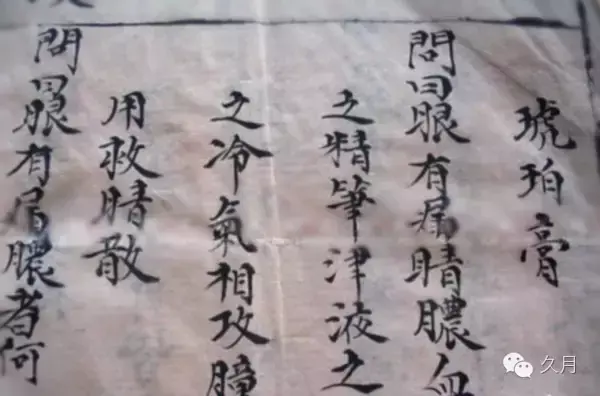 琥珀膏
問曰眼有睛膿血
之精筆津液之
之冷氣相攻瞳
用救睛散
問曰眼有眉膿者何
久月